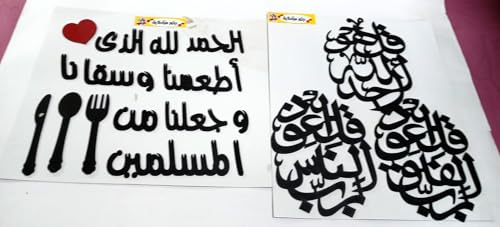 الحمد لله الذى
أطعمنا وسقانا
وجعلنا من
المسلمين
قل هو
الله
احد
قل اعوذ
برب
الناس
قل اعوذ
برب
الفلق